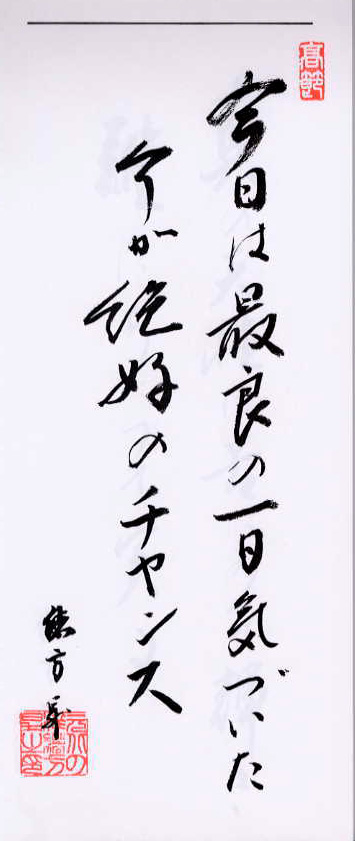 高節
今日は最良の一日気づいた
今が絶好のチャンス